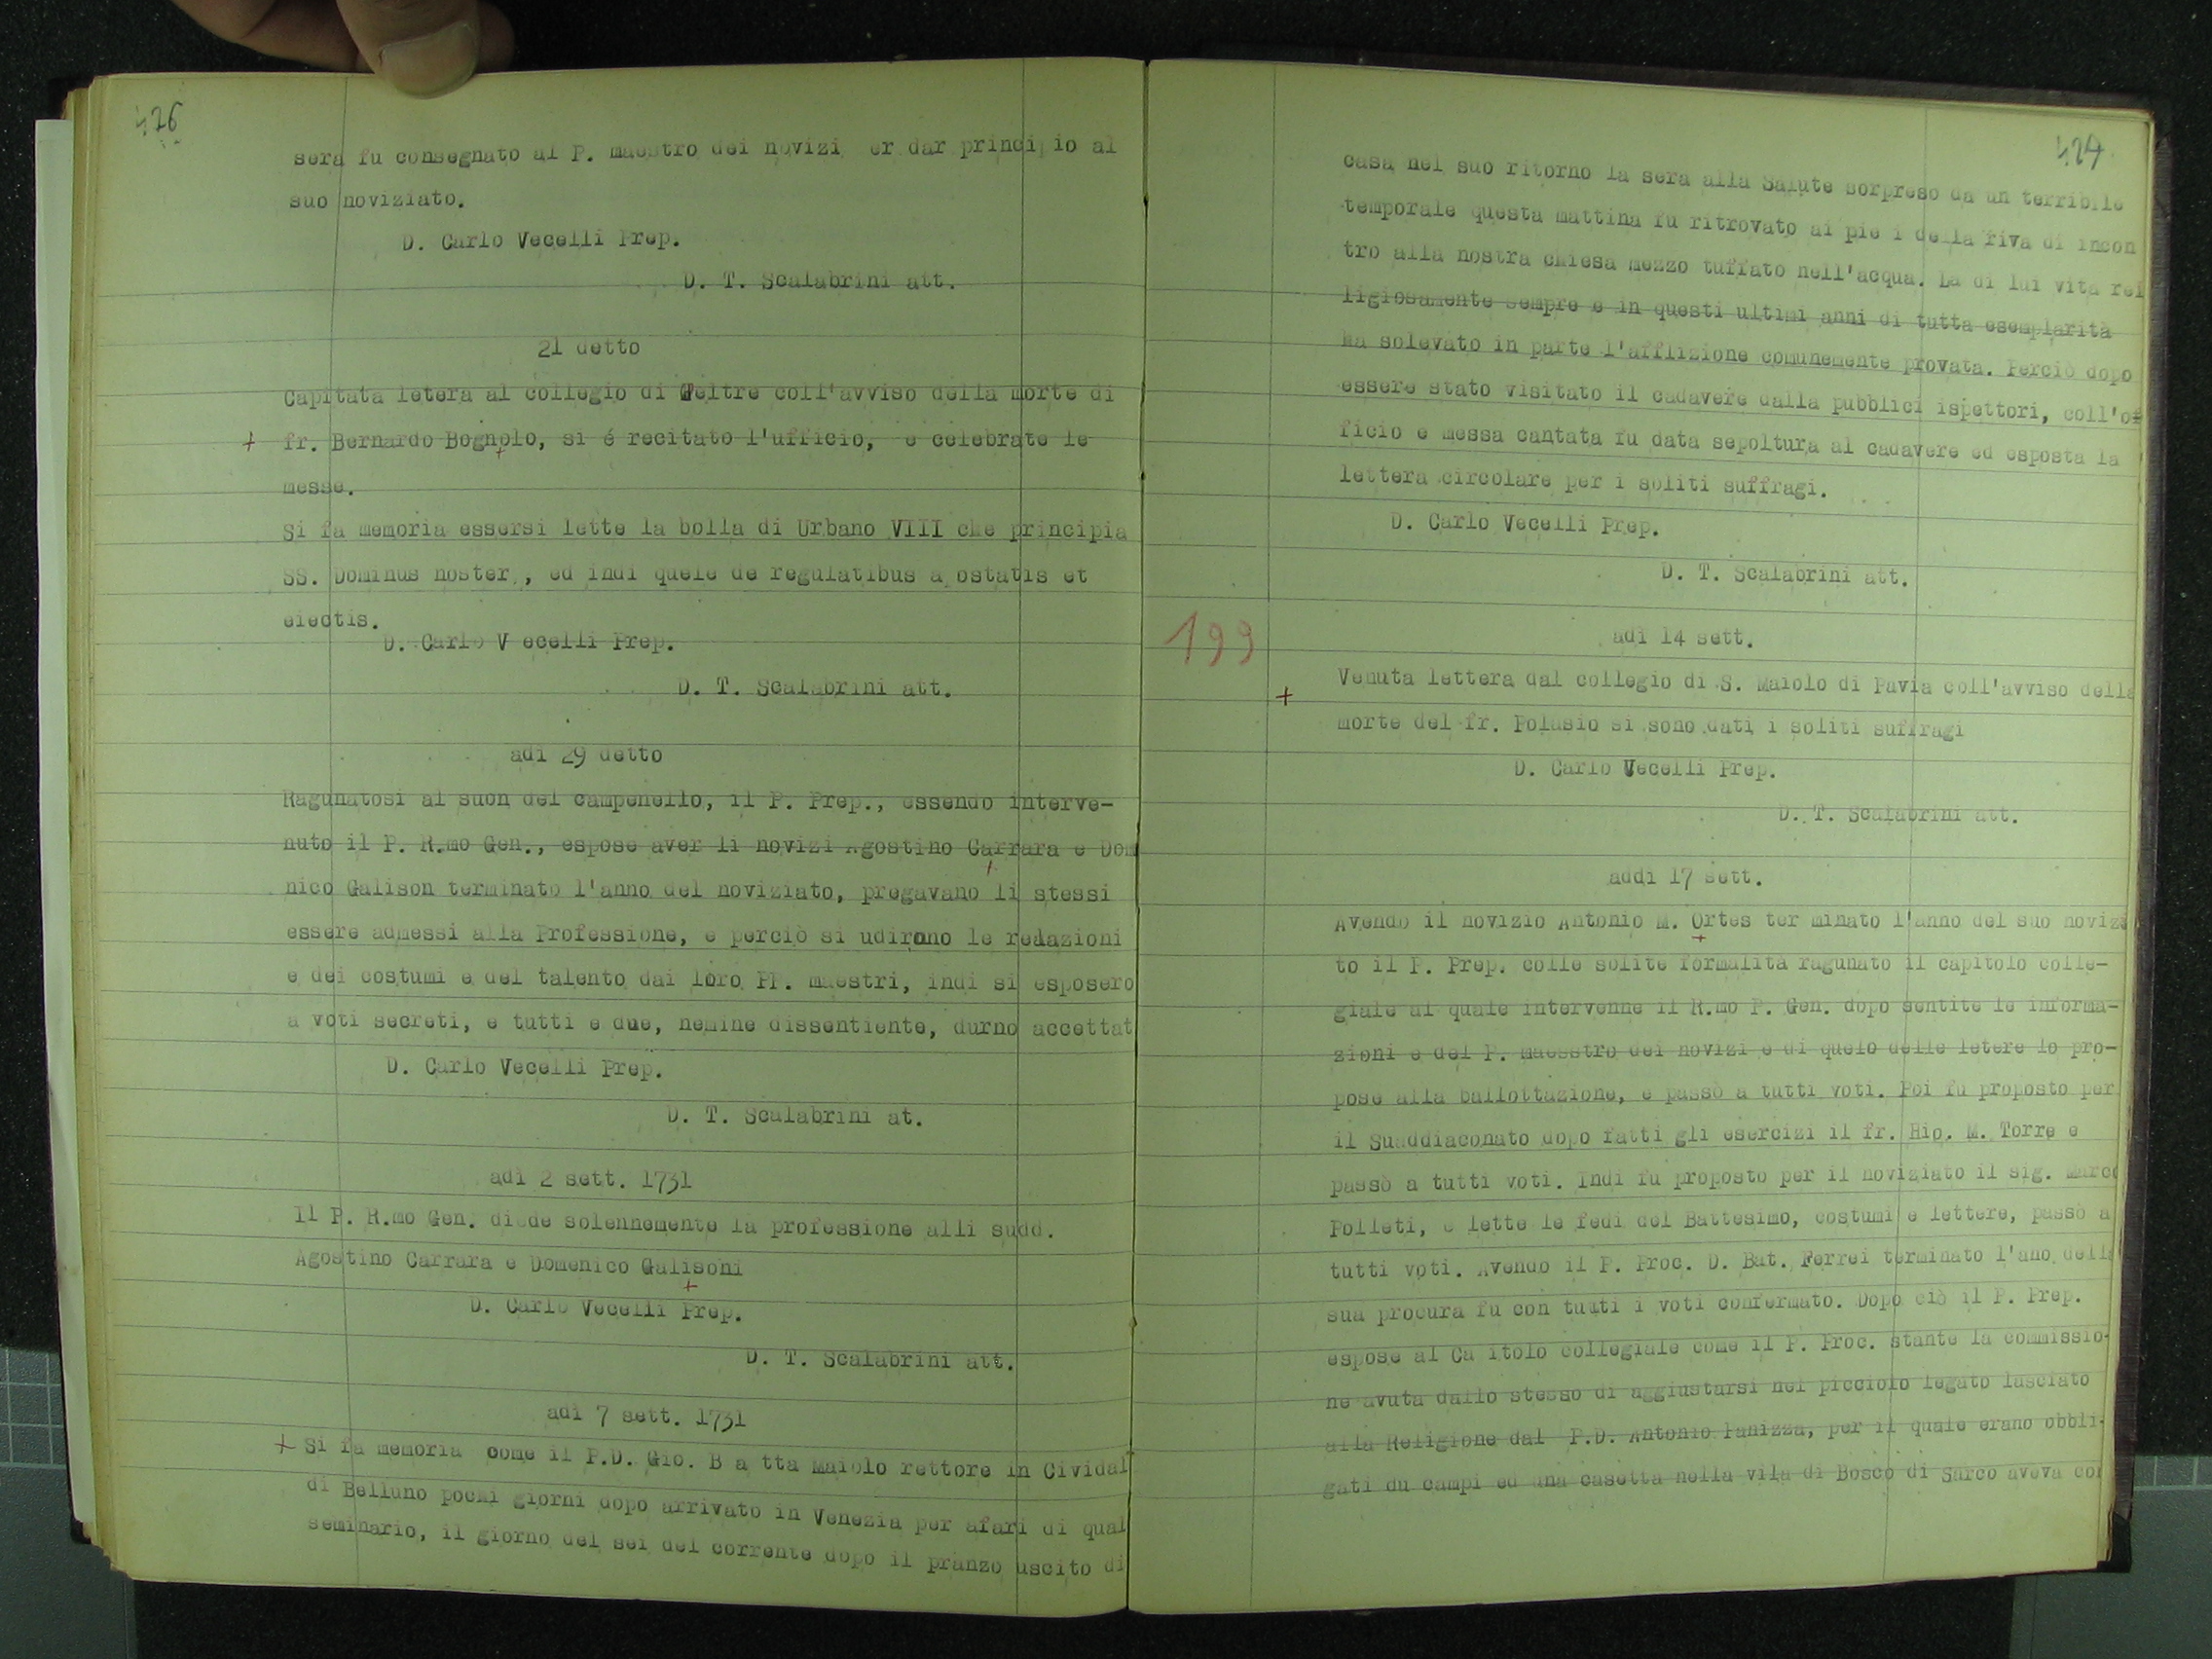 426
sera fu consegnato al P. maestro dei novizi er dar principio al
suo noviziato.
D. Carlo Vecelli Prep.
D. T. Scalabrini att.
21 detto
Capitata letera al collegio di Feltre coll'avviso della morte di
+ fr. Bernardo Bognolo, si é recitato l'ufficio, e celebrate le
messe.
Si fa memoria essersi lette la bolla di Urbano VIII che principia
SS. Dominus noster, ed indi quele de regulatibus a ostatis et
eiectis.
D. Carlo V ecelli Prep.
D. T. Scalabrini att.
adi 29 detto
Ragunatosi al suon del campenello, il P. Prep., essendo interve-
nuto il P. R.mo Gen., espose aver li novizi Agostino Carrara e Dom
nico Galison terminato l'anno del noviziato, pregavano li stessi
essere admessi alla Professione, e perciò si udirono le relazioni
e dei costumi e del talento dai loro PP. maestri, indi si esposero
a voti secreti, e tutti e due, nemine dissentiente, durno accettat
D. Carlo Vecelli Prep.
D. T. Scalabrini at.
adi 2 sett. 1731
Il P. R.mo Gen. diede solennemente la professione alli sudd.
Agostino Carrara e Domenico Galisoni
D. Carlo Vecelli Prep.
D. T. Scalabrini att.
adi 7 sett. 1731
+ Si fa memoria come il P.D. Gio. B a tta Maiolo rettore in Cividal
di Belluno pochi giorni dopo arrivato in Venezia per afari di quel
seminario, il giorno del sei del corrente dopo il pranzo uscito di
427
casa nel suo ritorno la sera alla Salute sorpreso da un terribile
temporale questa mattina fu ritrovato ai pie i della riva di incon
tro alla nostra chiesa mezzo tuffato nell'acqua. La di lui vita rel
ligiosamente sempre e in questi ultimi anni di tutta esemplarità
ha solevato in parte l'afflizione comunemente provata. Perciò dopo
essere stato visitato il cadavere dalla pubblici ispettori, coll'of
ficio e messa cantata fu data sepoltura al cadavere ed esposta la
lettera circolare per i soliti suffragi.
D. Carlo Vecelli Prep.
D. T. Scalabrini att.
199
adi 14 sett.
+ Venuta lettera dal collegio di S. Maiolo di Pavia coll'avviso della
morte del fr. Polasio si sono dati i soliti suffragi
D. Carlo Vecelli Prep.
D. T. Scalabrini att.
addi 17 sett.
Avendo il novizio Antonio M. Ortes ter minato l'anno del suo novizi
to il P. Prep. colle solite formalità ragunato il capitolo colle-
giale al quale intervenne il R.mo P. Gen. dopo sentite le informa-
zioni e del P. maesstro dei novizi e di quelo delle letere lo pro-
pose alla ballottazione, e passò a tutti voti. Poi fu proposto per
il Suaddiaconato dopo fatti gli esercizi il fr. Hip. M. Torre e
passò a tutti voti. Indi fu proposto per il noviziato il sig. Marco
Polleti, e lette le fedi del Battesimo, costumi e lettere, passò a
tutti voti. Avendo il P. Proc. D. Bat. Ferrei terminato l'ano della
sua procura fu con tuuti i voti confermato. Dopo ciò il P. Prep.
espose al Ca itolo collegiale come il P. Proc. stante la commissio-
ne avuta dallo stesso di aggiustarsi nel picciolo legato lasciato
alla Religione dal P.D. Antonio Panizza, per il quale erano obbli-
gati du campi ed una casetta nella vila di Bosco di Sarco aveva con